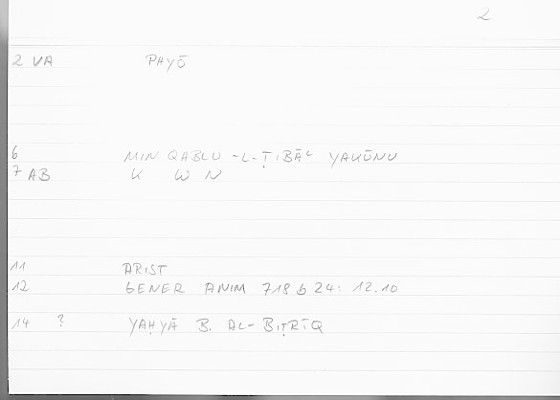 2
2 VA PAYŌ
6 MIN QABLU -L-ṬIBĀʿ YAKŪNU
7 AB K W N
11 ARIST
12 GENER ANIM 718 b 24: 12.10
14 ? YAḤYĀ B. AL-BIṬRĪQ